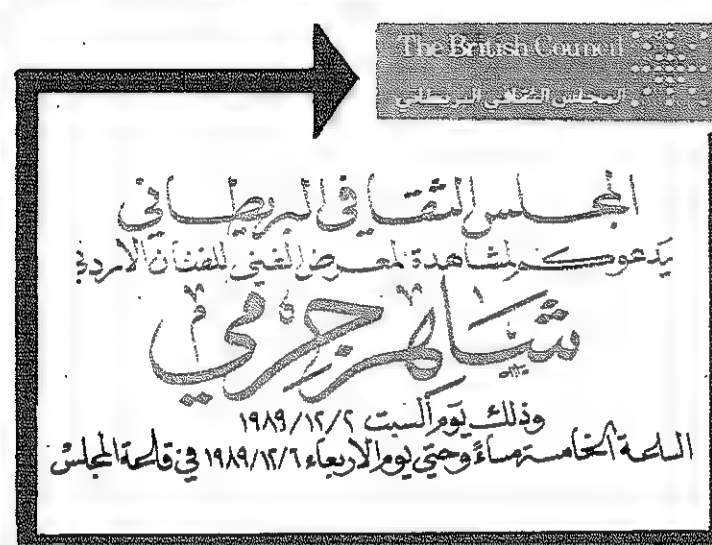 The British Council
المجلس الثقافي البريطاني
المجلس الثقافي البريطاني
يدعوكم لمشاهدة المعرض الفني للفنان الاردني
وذلك يوم السبت ١٩٨٩/١٢/٢
الساعة الخامسة مساءً وحتى يوم الاربعاء ١٩٨٩/١٢/٦ في قاعة المجلس